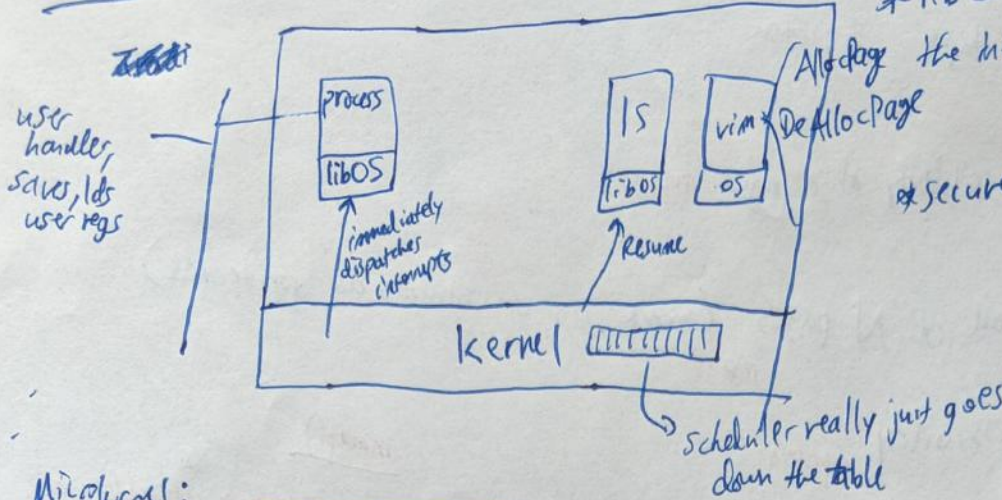 user
handler,
saves, lds
user regs
process
libOS
immediately
dispatches
interrupts
ls
libOS
Resume
vim
OS
AllocPage the in
DeAllocPage
*secur
kernel
scheduler really just goes
down the table